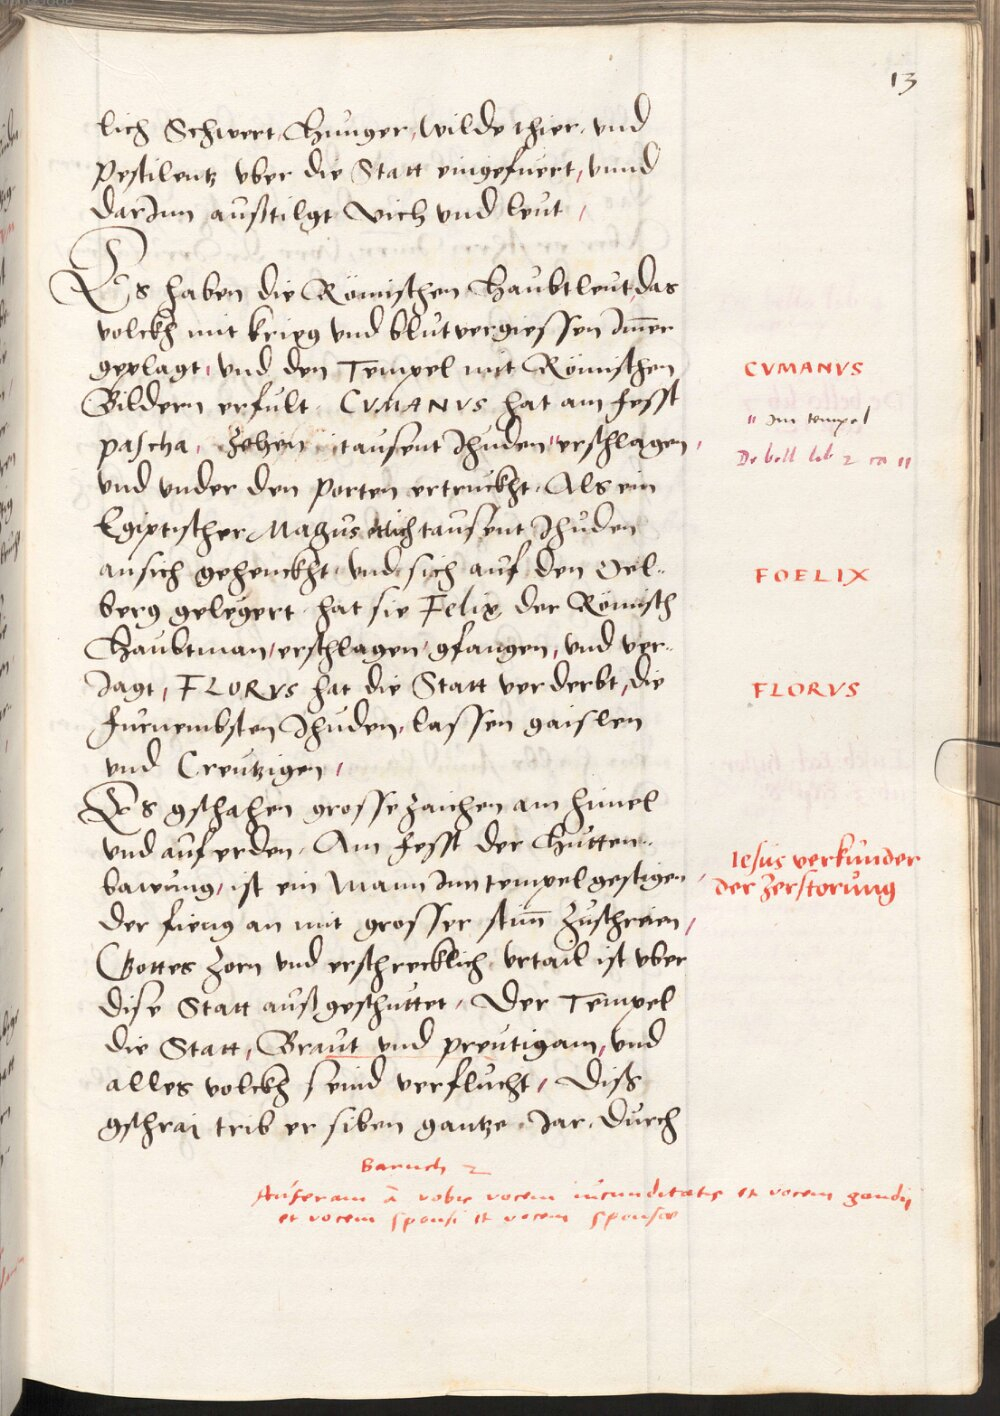 13
lich Schwert, Hunger, wilde thier, vnd
Pestilentz vber die Statt eingefuert, vnnd
darJnn außtilgt Vich vnd leut,
Es haben die Römischen Haubtleut, das
volckh mit krieg vnd blutvergiessen Jm̄er
geplagt, vnd den Tempel mit Römischen
Bildern erfult. CVMANVS hat am fesst
pascha, Zehen tausent Jhuden erschlagen,
vnd vnder den Porten ertruckht. Als ein
Egiptischer Magus etlich tausent Jhuden
ansich gehenckht vnd sich auf den Oel-
berg gelegert hat sie Felix der Römisch
Haubtman, erschlagen, gfangen, vnd ver-
Jagt, FLORVS hat die Statt verderbt, die
furnembsten Jhuden, lassen gaislen
vnd Creutzigen,
Es gschahen grosse zaichen am himel
vnd auf erden. Am fesst der Hutten-
bawung, ist ein Mann Jnn tempel gestigen,
der fieng an mit grosser stim̄ Zuschreien,
Gottes Zorn vnd erschrecklich vrtail ist vber
dise Statt außgeschuttet, Der Tempel
die Statt, Braut vnd preutigam, vnd
alles volckh seind verflucht, Diss
gschraj trib er siben gantze Jar, Durch
CVMANVS
" Jm tempel
De bell lib 2 ca 11
FOELIX
FLORVS
Iesus verkunder
der Zerstorung
Baruch 2
Auferam a vobis vocem iucunditatis et vocem gaudij
et vocem sponsi et vocem sponsae